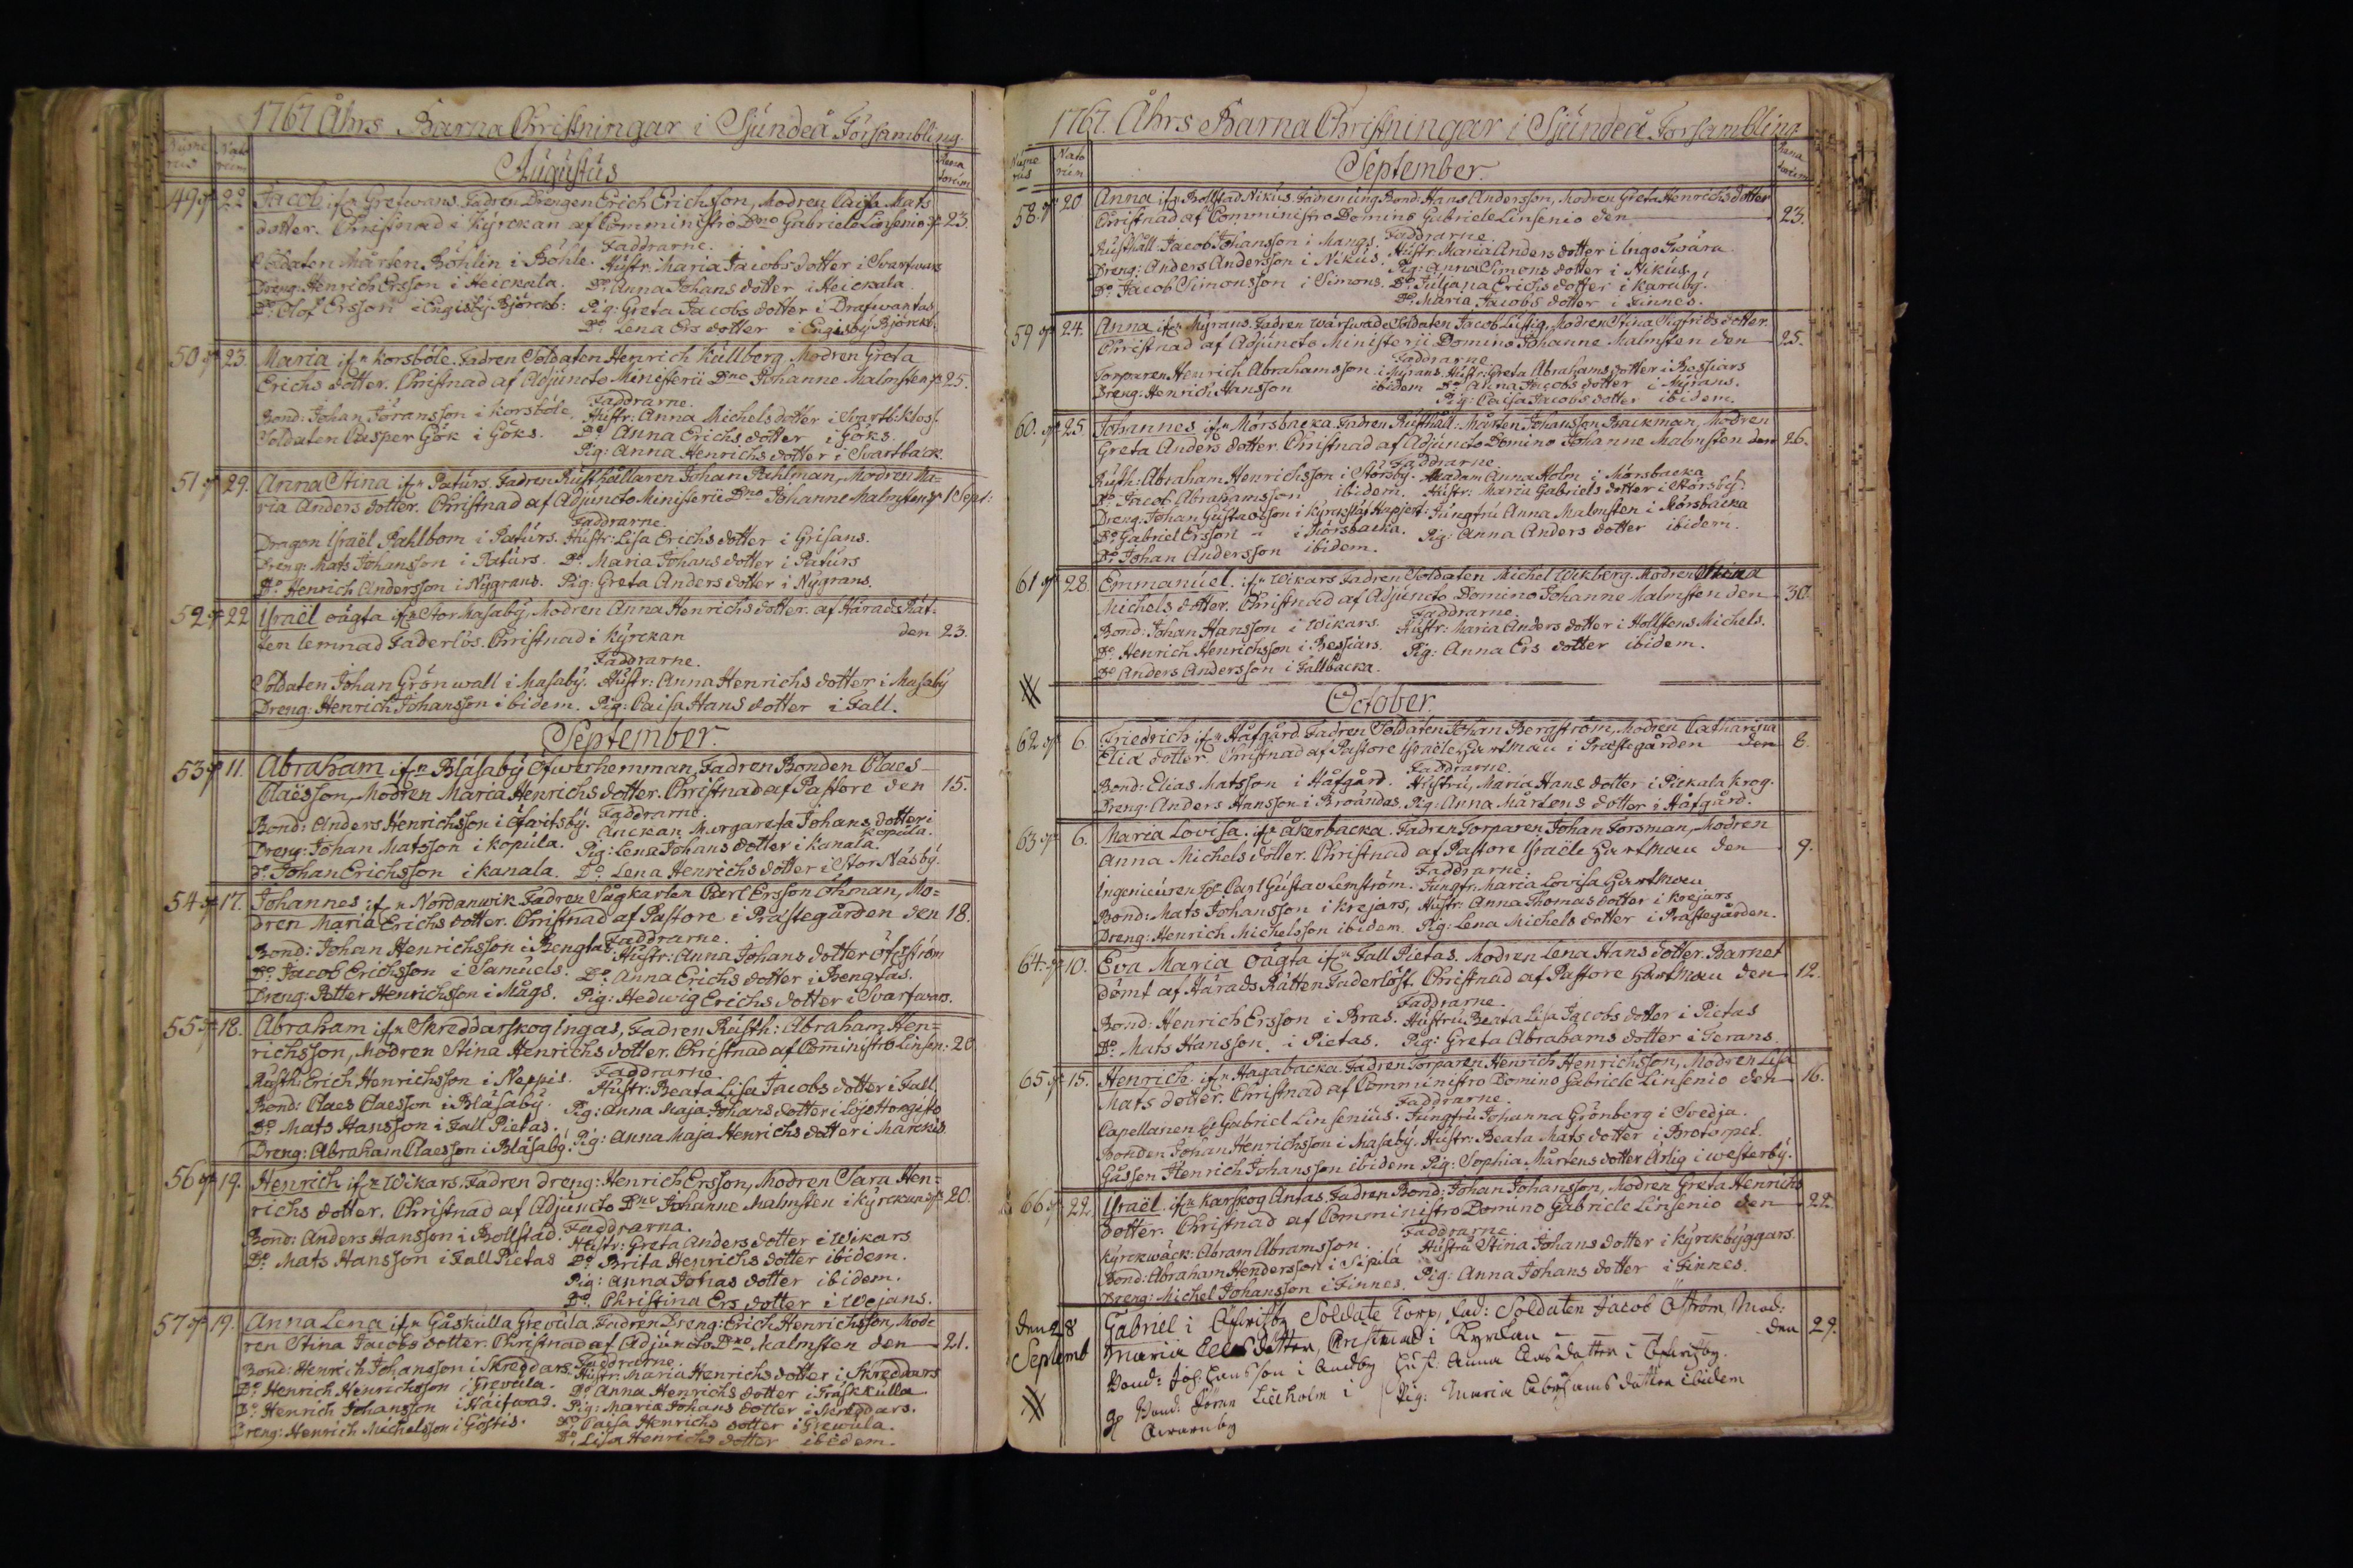 1767 Åhrs Barna Christningar i Sjundeå Försambling.
Nume rus
Nato rum
Rena torum
Augustus
49 22 Jacob if:n Grefwans. Fadren Drengen Erich Erichsson, Modren Caisa Mats
dotter. Christnad i Kyrckan af Comministro Dno Gabriele Linsenio 23.
Faddrarne.
Soldaten Mårten Böhlin i Böhle. Hustr: Maria Jacobs dotter i Svartwars
Dreng: Henrich Ersson i Heickala. Do Anna Johans dotter i Heickala.
Do. Olof Ersson i Engisby Björckb: Pig: Greta Jacobs dotter i Drafwantas
Do Lena Ers dotter i Engisby Björckb:
50 23. Maria if:n Korsböle. Fadren Soldaten Henrich Kullberg Modren Greta
Erichs dotter. Christnad af Adjuncto Ministerii Dno Johanne Malmsten 25.
Faddrarne.
Bond: Johan Jöransson i Korsböle. Hustr: Anna Michels dotter i Svartb: Klos:
Soldaten Casper Gök i Göks. Do Anna Erichs dotter i Göks.
Pig: Anna Henrichs dotter i Svartback.
51 29. Anna Stina if:n Paturs. Fadren Rusthållaren Johan Rahlman, Modren Ma=
ria Anders dotter. Christnad af Adjuncto Ministerii Dno Johanne Malmsten 1 Sept:
Faddrarne.
Dragon Israël Rahlbom i Paturs. Hustr: Lisa Erichs dotter i Grisans.
Dreng: Mats Johansson i Paturs. Do. Maria Johans dotter i Paturs
Do. Henrich Andersson i Nygrans. Pig: Greta Anders dotter i Nygrans.
52 22 Israël oägta if:n Stor Masaby, Modren Anna Henrichs dotter. af Härads Rät-
ten lemnad Faderlös. Christnad i kyrckan den 23.
Faddrarne.
Soldaten Johan Grönwall i Masaby. Hustr: Anna Henrichs dotter i Masaby
Dreng: Henrich Johansson ibidem. Pig: Caisa Hans dotter i Fall.
September.
53 11. Abraham if:n Blåsaby Öfwerhemman, Fadren Bonden Claes
Claësson, Modren Maria Henrichs dotter. Christnad af Pastore den 15.
Faddrarne.
Bond: Anders Henrichsson i Öfwitsby. Anckan Margareta Johans dotter i
Kopula.
Dreng: Johan Matsson i Kopula. Pig: Lena Johans dotter i Kanala.
Do Johan Erichsson i Kanala. Do. Lena Henrichs dotter i Stor Näsby.
54 17. Johannes if:n Nordanwik Fadren Sågkarlen Carl Ersson Öhman, Mo=
dren Maria Erichs dotter. Christnad af Pastore i Prästegården den 18.
Faddrarne.
Bond: Johan Henrichsson i Bengtas. Hustr: Anna Johans dotter Öfström
Do. Jacob Erichsson i Samuels. Do. Anna Erichs dotter i Bengtas.
Dreng: Petter Henrichsson i Mågs. Pig: Hedwig Erichs dotter i Svartwars.
55 18. Abraham if:n Skreddarskog Ingas, Fadren Rusth: Abraham Hen=
richsson, Modren Stina Henrichs dotter. Christnad af Cõministro Linsen: 20
Faddrarne.
Rusth: Erich Henrichsson i Neppis. Hustr: Beata Lisa Jacobs dotter i Fall.
Bond: Claes Claesson i Blåsaby. Pig: Anna Maja Johans dotter i Löjo Hongisto
Do Mats Hansson i Fall Pietas. Pig: Anna Maja Henrichs dotter i Marckus.
Dreng: Abraham Claesson i Blåsaby.
56 19. Henrich if:n Wikars. Fadren dreng: Henrich Ersson, Modren Sara Hen=
richs dotter. Christnad af Adjuncto Dno Johanne Malmsten i kyrckan 20.
Faddrarna.
Bond: Anders Hansson i Bollstad. Hustr: Greta Anders dotter i Wikars
Do. Mats Hansson i Fall Pietas Do. Brita Henrichs dotter ibidem.
Pig: Anna Johas dotter ibidem.
Do. Christina Ers dotter i Wejans.
57 19. Anna Lena if:n Gåskulla Grevula. Fadren Dreng: Erich Henrichsson, Mod:
ren Stina Jacobs dotter. Christnad af Adjuncto Dno Malmsten den 21.
Faddrarne.
Bond: Henrich Johansson i Skreddars. Hustr: Maria Henrichs dotter i Skreddars
Do. Henrich Henrichsson i Grevula. Do Anna Henrichs dotter i Träskkulla
Do. Henrich Johansson i Haifwas. Pig: Maria Johans dotter i Skreddars.
Dreng: Henrich Michelsson i Göstis. Do Caisa Henrichs dotter i Grewula.
Do. Lisa Henrichs dotter ibidem.
1767. Åhrs Barna Christningar i Sjundeå Forsambling
Nume rus
Nato rum
Rena torum
September.
58. 20 Anna if:n Bollstad Nikus. Fadren ung Bond: Hans Andersson, Modren Greta Henrichs dotter
Christnad af Comministro Domino Gabriele Linsenio den 23.
Faddrarne
Rusthåll: Jacob Johansson i Mangs. Hustr: Maria Anders dotter i Ingo Twära
Dreng: Anders Andersson i Nikus. Pig: Anna Simons dotter i Nikus.
Do. Jacob Simonsson i Simons. Do. Juliana Erichs dotter i Karuby.
Do. Maria Jacobs dotter i Finnes.
59 24. Anna if:n Myrans. Fadren wärfwade Soldaten Jacob Lustig, Modren Stina Sigfrids dotter
Christnad af Adjuncto Ministerji Domino Johanne Malmsten den 25.
Faddrarne
Torparen Henrich Abrahamsson i Myrans. Hustr: Greta Abrahams dotter i Bessiars
Dreng: Henrich Hansson ibidem Do Anna Jacobs dotter i Myrans.
Pig: Caisa Jacobs dotter ibidem.
60. 25. Johannes if:n Mörsbacka. Fadren Rusthåll: Mårten Johansson Backman, Modren
Greta Anders dotter. Christnad af Adjuncto Domino Johanne Malmsten den 26.
Faddrarne.
Rusth: Abraham Henrichsson i Störsby. Madam Anna Holm i Mörsbacka
Do. Jacob Abrahamsson ibidem. Hustr: Maria Gabriels dotter i Störsby.
Dreng. Johan Gustavsson i Kyrckslät Hapjert: Jungfru Anna Malmsten i Mörsbacka
Do. Gabriel Ersson i Mörsbacka. Pig: Anna Anders dotter ibidem.
Do: Johan Andersson ibidem.
61 28. Emmanuel. if:n Wikars Fadren Soldaten Michel Wikberg. Modren Stina
Michels dotter. Christnad af Adjuncto Domino Johanne Malmsten den 30.
Faddrarne.
Bond: Johan Hansson i Wikars. Hustr: Maria Anders dotter i Hollstens Michels.
Do. Henrich Henrichsson i Bessiars. Pig: Anna Ers dotter ibidem.
Do Anders Andersson i Fallbacka.
October.
62 6. Friedrich if:n Håfgård. Fadren Soldaten Johan Bergström, Modren Catharina
Elia dotter. Christnad af Pastore Israële Hartman i Præstegården den 8.
Faddrarne.
Bond: Elias Matsson i Håfgård. Hustru, Maria Hans dotter i Pickala Krog.
Dreng: Anders Hansson i Broändas. Pig: Anna Mårtens dotter i Håfgård.
63 6. Maria Lovisa. if:n Åkerbacka. Fadren Torparen Johan Forsman, Modren
Anna Michels dotter. Christnad af Pastore Israële Hartman den 9.
Faddrarne.
Ingenieuren H:r Carl Gustav Lemström. Jungfr: Maria Lovisa Hartman
Bond: Mats Johansson i Krejars, Hustr: Anna Thomas dotter i Krejars
Dreng: Henrich Michelsson ibidem. Pig: Lena Michels dotter i Prästegården.
64. 10. Eva Maria oägta if:n Fall Pietas. Modren Lena Hans dotter. Barnet
dömt af Härads Rätten Faderlöst. Christnad af Pastore Hartman den 12.
Faddrarne.
Bond: Henrich Ersson i Bras. Hustru Beata Lisa Jacobs dotter i Pietas
Do. Mats Hansson. i Pietas. Pig: Greta Abrahams dotter i Gerans.
65 15. Henrich. if:n Hagabacka. Fadren Torparen Henrich Henrichsson, Modren Lisa
Mats dotter. Christnad af Comministro Domino Gabriele Linsenio den 16.
Faddrarne.
Capellanen H:r Gabriel Linsenius. Jungfru Johanna Grönberg i Svedja.
Bonden Johan Henrichsson i Masaby. Hustr: Beata Mats dotter i Brotorpet.
Gåssen Henrich Johansson ibidem Pig: Sophia Mårtens dotter Ärlig i Westerby.
66 22. Israël. if:n Karskog Antas. Fadren Bond: Johan Johansson, Modren Greta Henrichs
dotter. Christnad af Comministro Domino Gabriele Linsenio den 22.
Faddrarne.
Kyrckwäck: Abram Abramsson. Hustru Stina Johans dotter i Kyrckbyggars.
Bond: Abraham Hendersson i Sipilä Pig: Anna Johans dotter i Finnes.
Dreng: Michel Johansson i Finnes.
Den 28 Septemb Gabriel i Öfwitsby Soldate Torp, Fad: Soldaten Jacob Öström Mod:
Maria dotter, Christnad i Kyrckan — — — den 29.
Bond: Joh: Hansson i Andby Hust: Anna dotter i Öfwitsby.
Bond: Jöran Lillholm i Pig: Maria Abrahams dotter ibidem